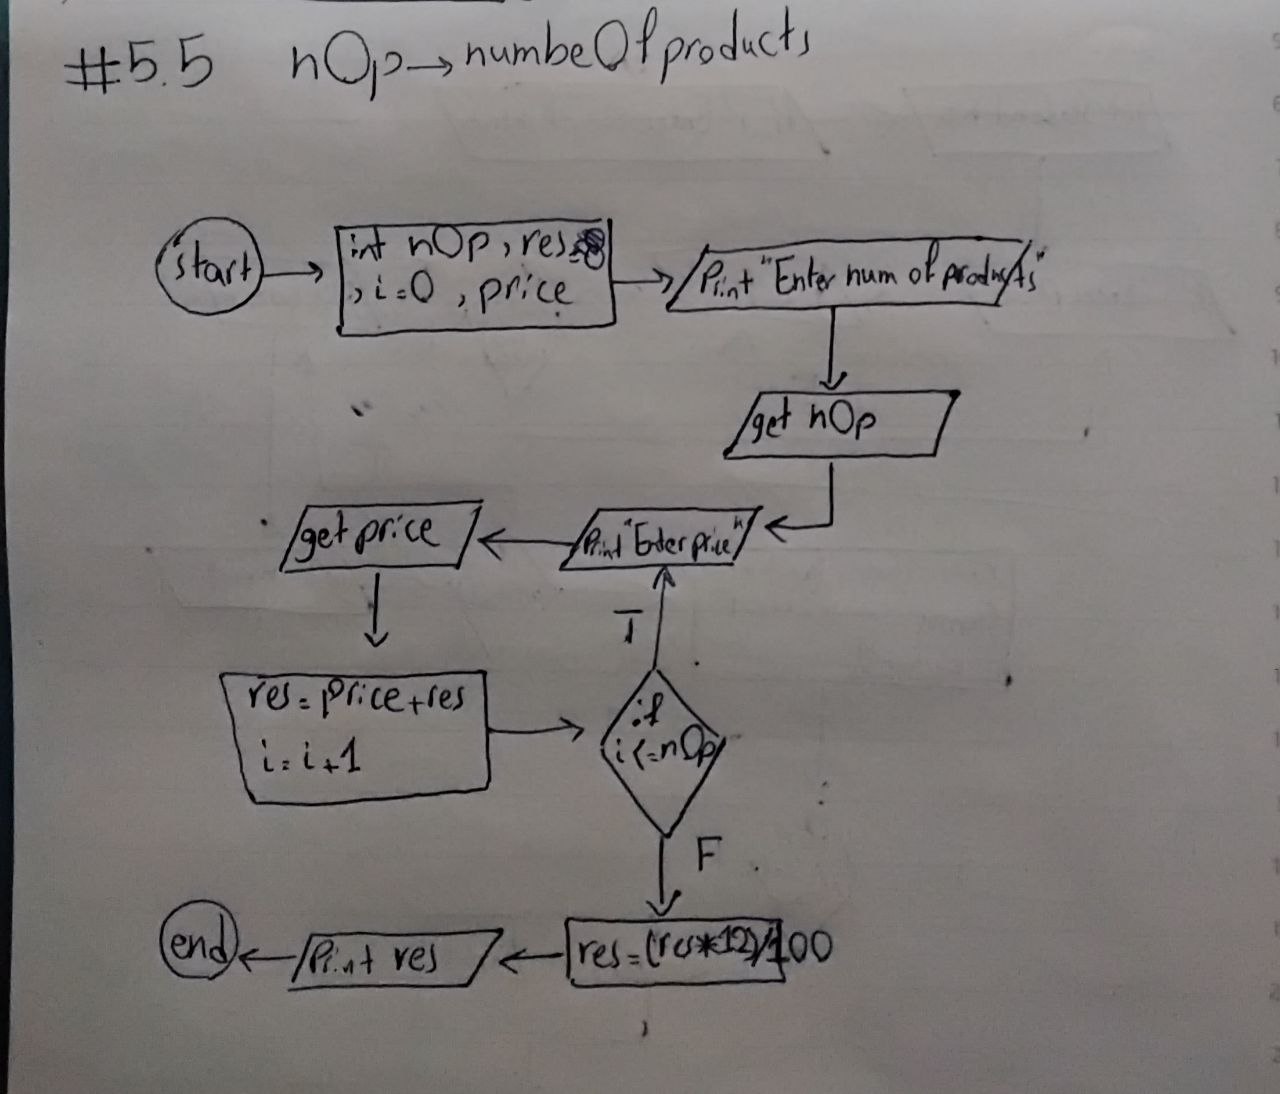 #5.5 nOp→numbeOfproducts
start
int nOp, res=
, i=0 , price
Print "Enter num of products"
get nOp
Print "Enter price"
get price
res=price+res
i=i+1
if
i<=nOp
T
F
res=(res*12)/100
Print res
end